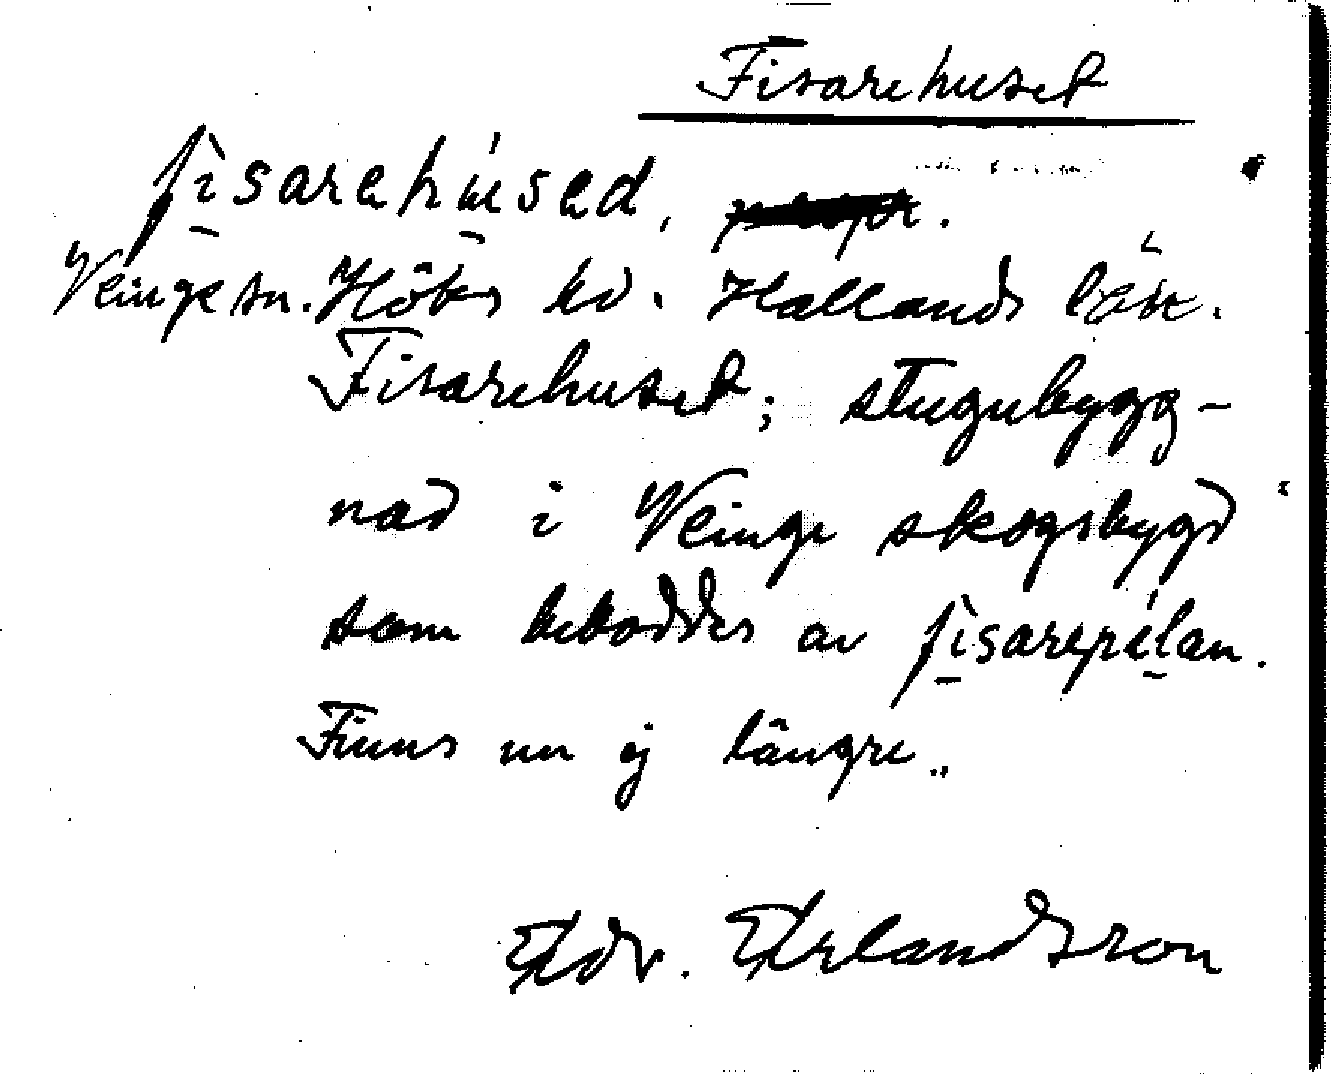 Fisarehuset
fisarehused,
Veinge sn. Höks hd. Hallands län.
Fisarehuset; stugubygg-
nad i Veinge skogsbygd
som beboddes av fisarepélan.
Finns nu ej längre.
Edv. Erlandsson